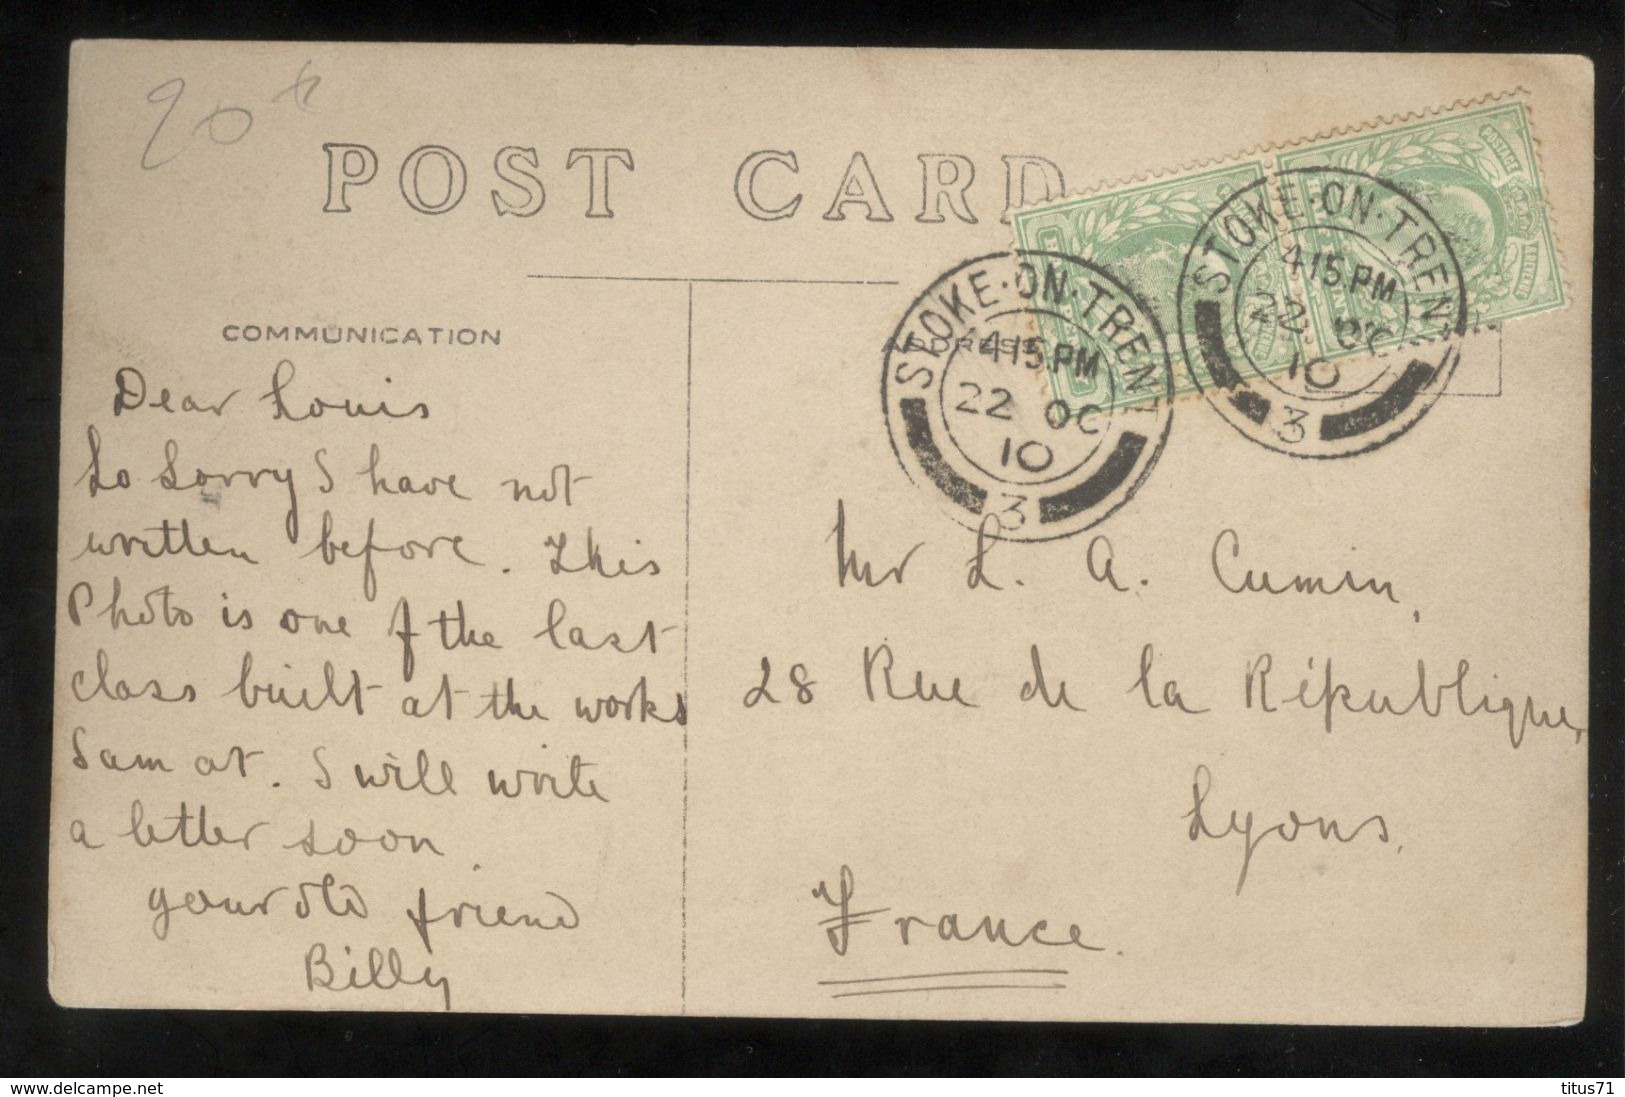 POST CARD
COMMUNICATION
ADDRESS
STOKE·ON·TRENT
415.PM
22 OC
10
3
STOKE·ON·TRENT
415.PM
22 OC
10
3
POSTAGE
Dear Louis
So Sorry I have not
written before. This
Photo is one of the last
class built at the works
I am at. I will write
a letter soon
your old friend
Billy
Mr L. A. Cumin,
28 Rue de la République,
Lyons,
France.
www.delcampe.net
titus71